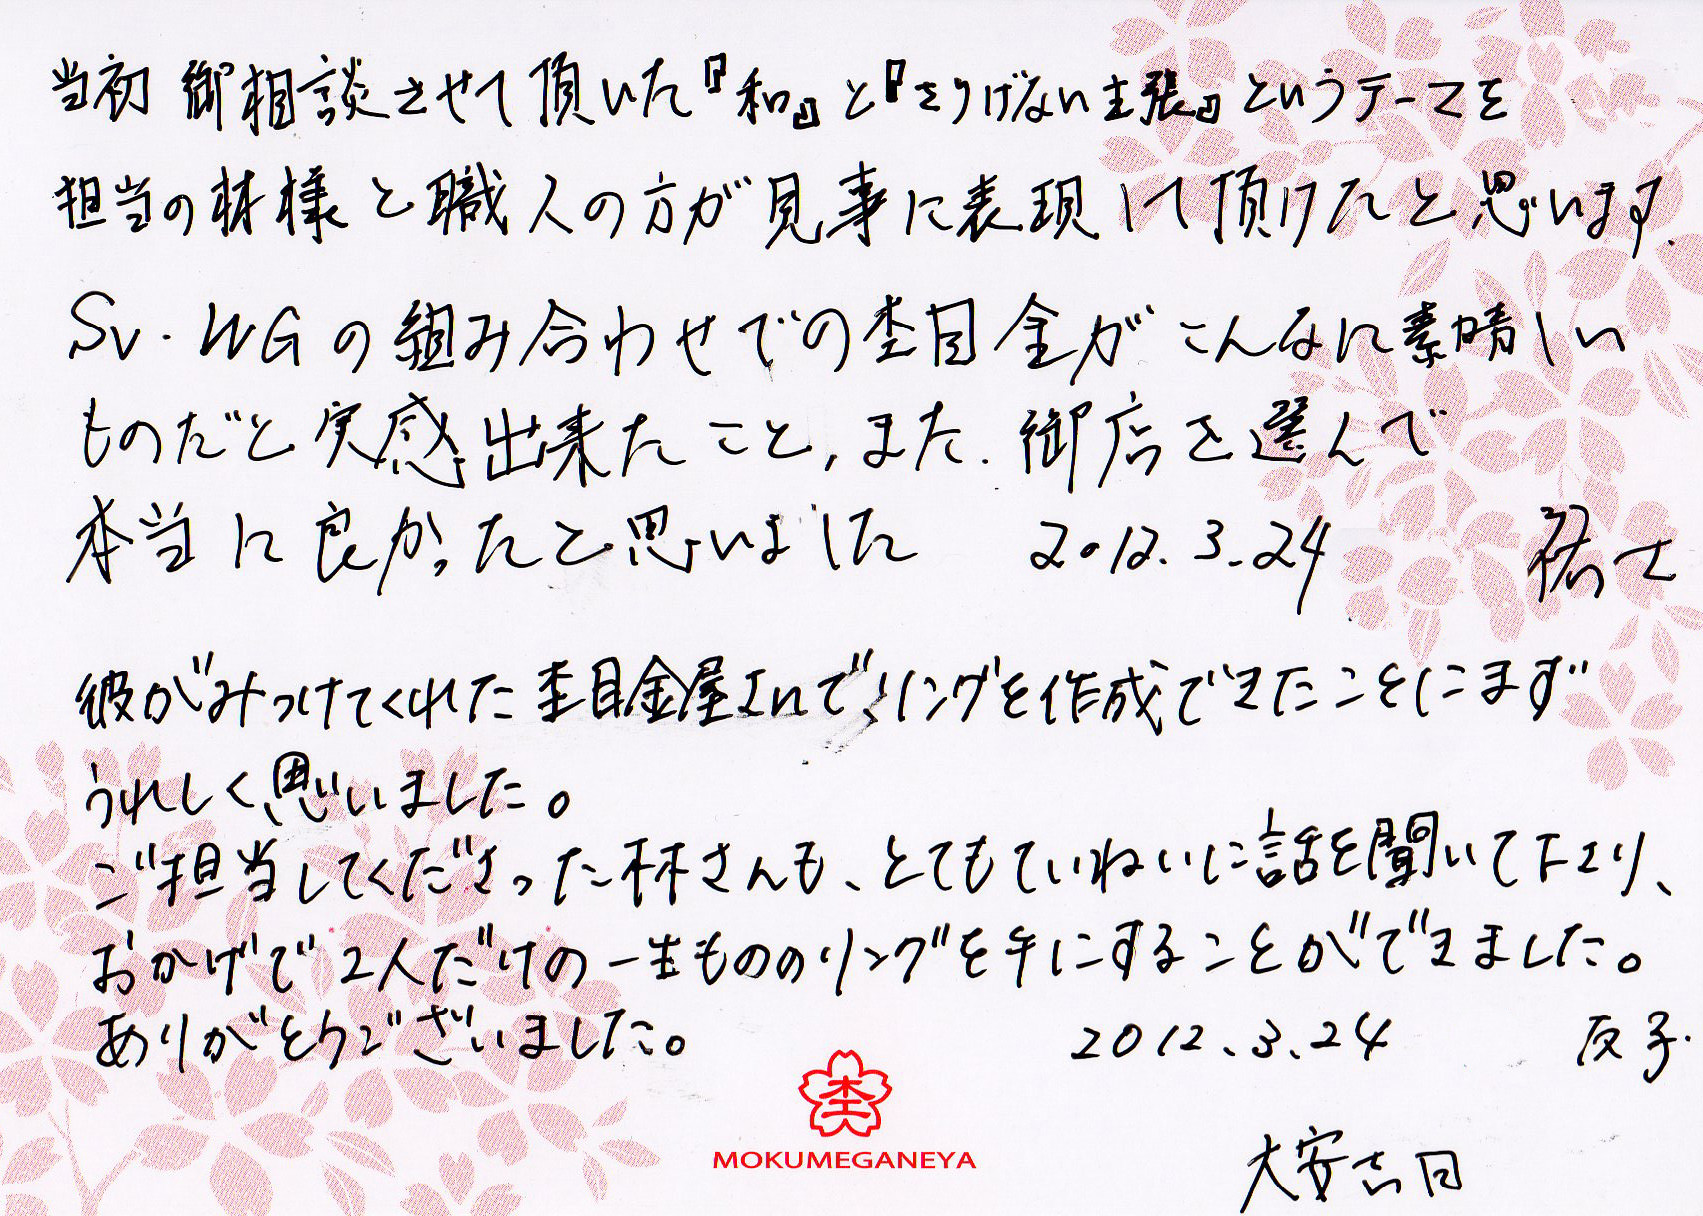 当初 御相談させて頂いた『和』と『さりげない主張』というテーマを
担当の林様と職人の方が見事に表現して頂けたと思います.
SV・WGの組み合わせでの杢目金がこんなに素晴しい
ものだと実感出来たこと, また. 御店を選んで
本当に良かったと思いました 2012.3.24 祐士
彼がみつけてくれた杢目金屋さんでリングを作成できたことにまず
うれしく思いました。
ご担当してくださった林さんも、とてもていねいに話を聞いて下さり、
おかげで2人だけの一生もののリングを手にすることができました。
ありがとうございました。 2012.3.24 友子.
MOKUMEGANEYA
大安吉日